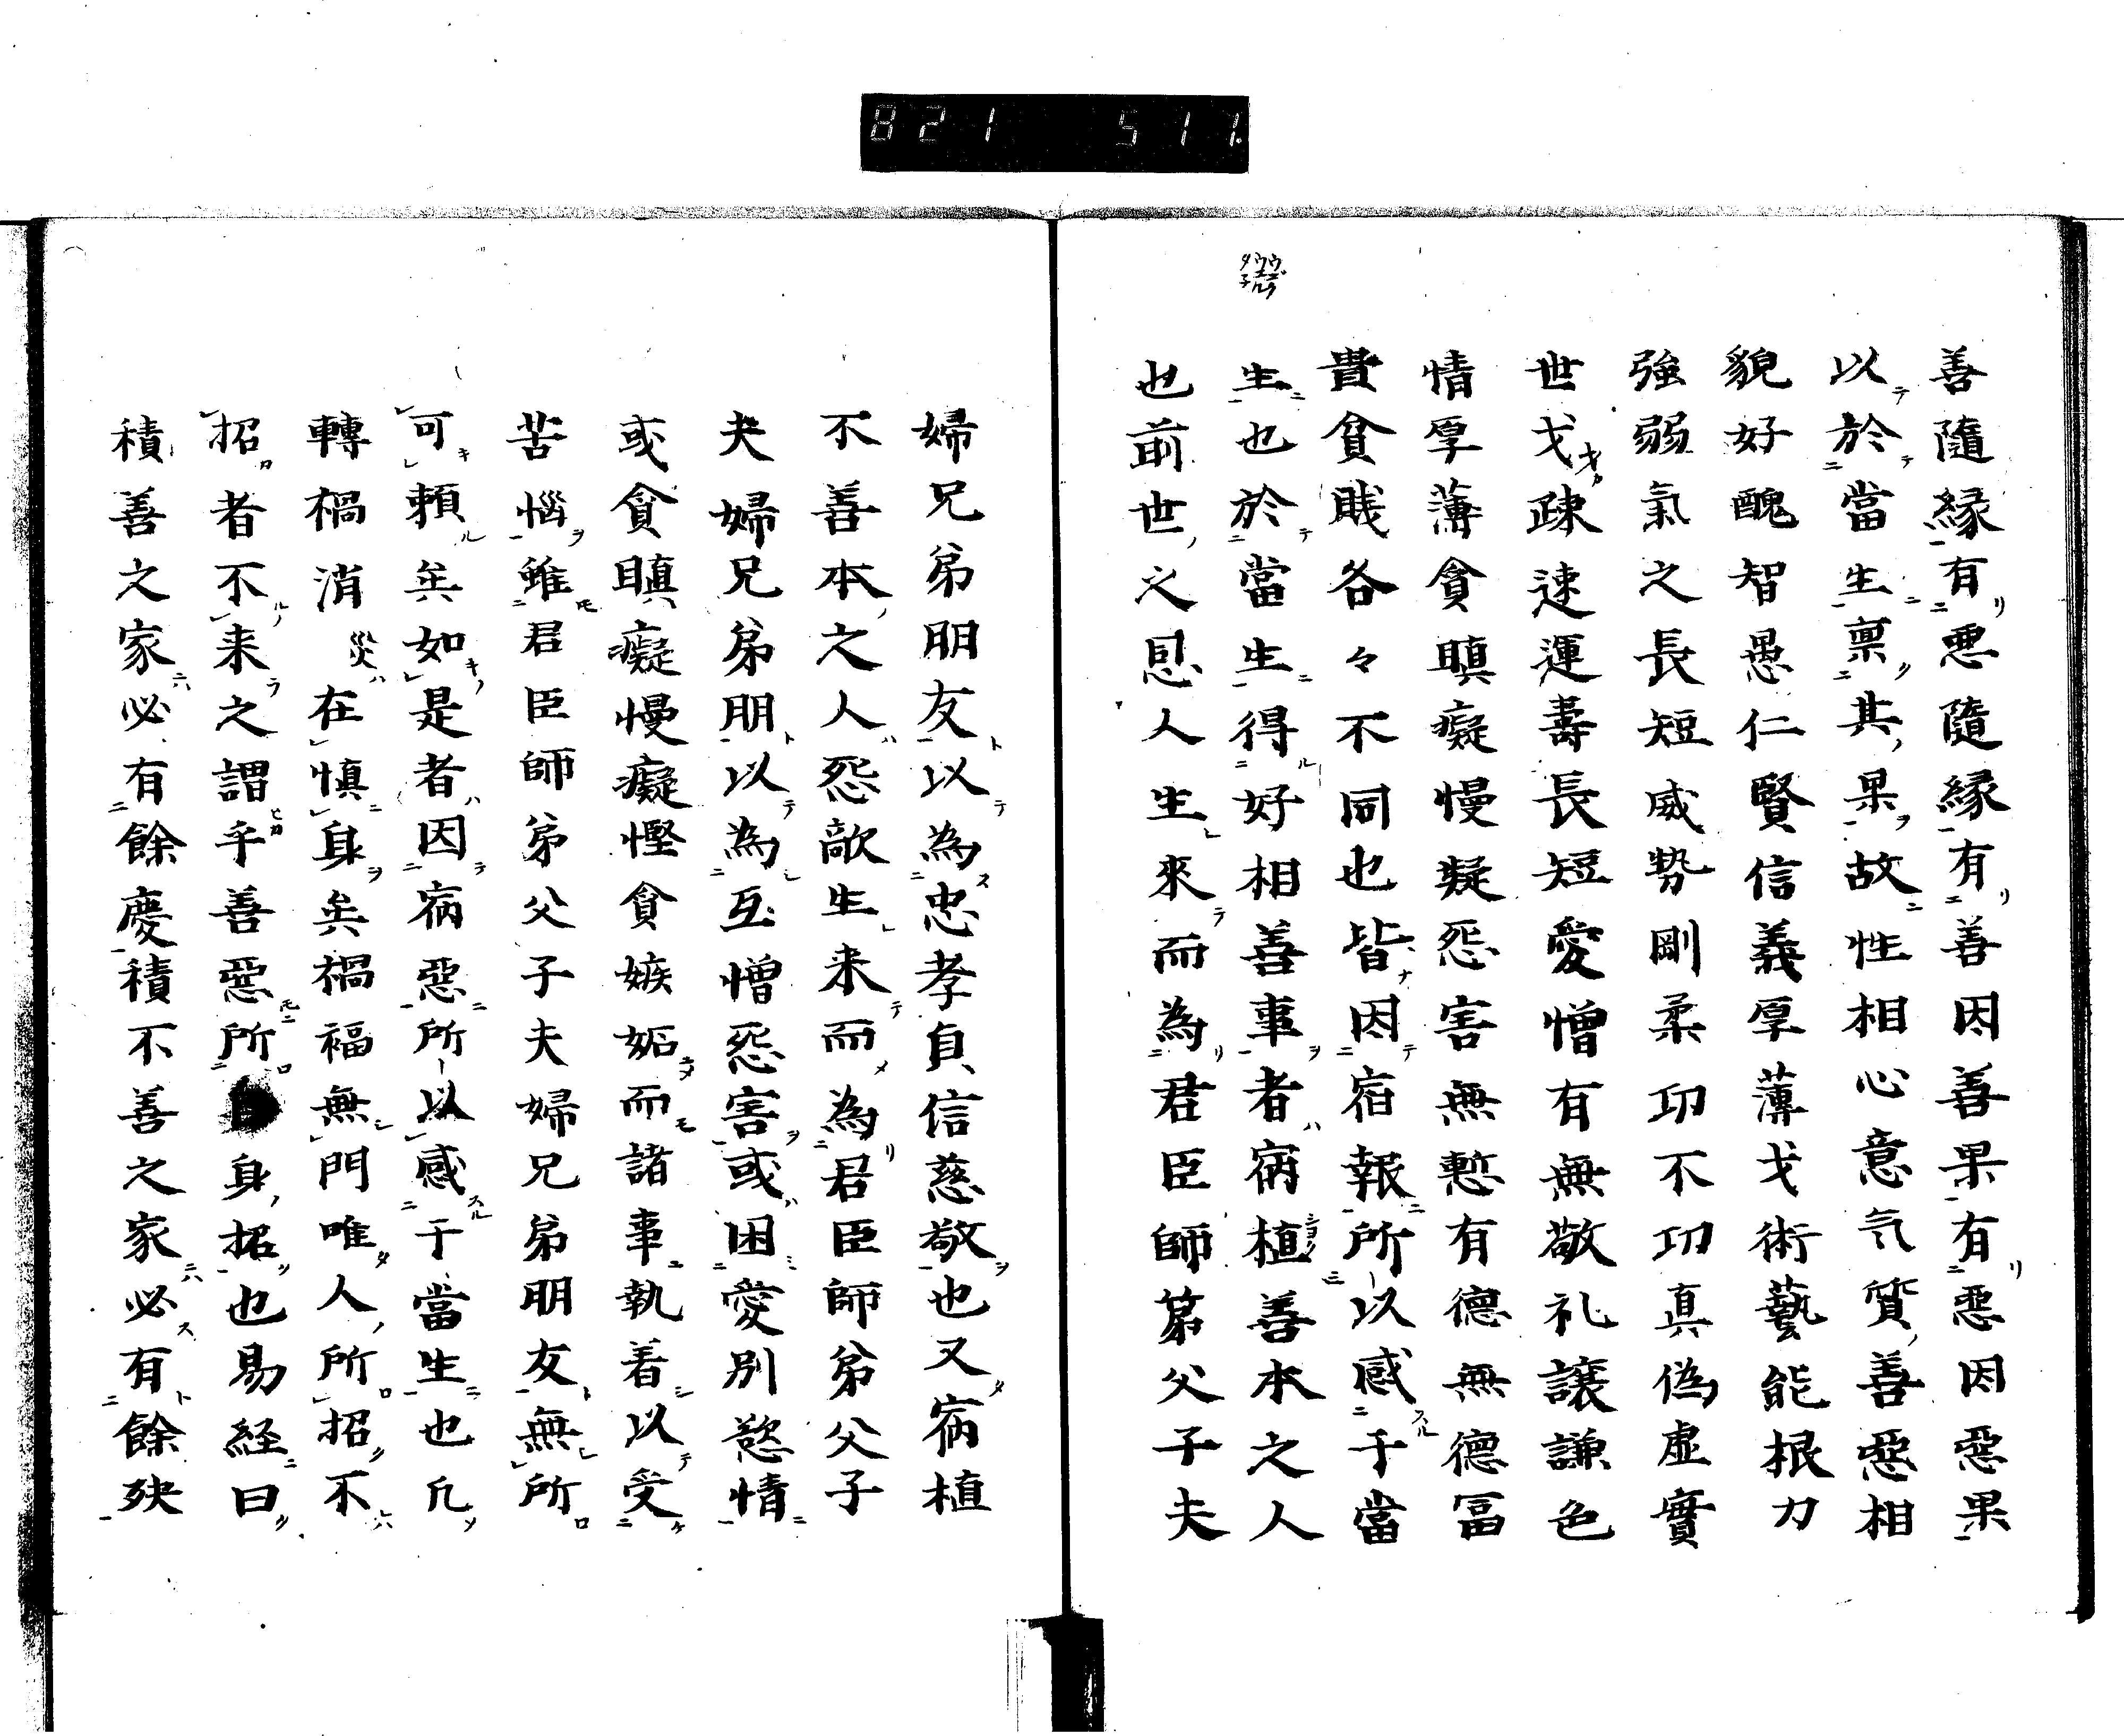 821 511
善隨縁有悪隨縁有善因善果有惡因惡果
以於當生禀其果故性相心意气質善惡相
貌好醜智愚仁賢信義厚薄戈術藝能根力
強弱氣之長短威勢剛柔功不功真偽虚實
世戈疎速運壽長短愛憎有無敬礼譲謙色
情厚薄貪瞋癡慢凝怨害無慙有德無德冨
貴貧賎各々不同也皆因宿報所以感于當
生也於當生得好相善事者病植善本之人
也前世之恩人生來而為君臣師弟父子夫
婦兄弟朋友以為忠孝貞信慈敬也又病植
不善本之人怨敵生来而為君臣師弟父子
夫婦兄弟朋以為互憎怨害或困愛別慾情
或貪瞋癡慢癡慳貪嫉妬而諸事執着以受
苦惱雖君臣師弟父子夫婦兄弟朋友無所
可頼矣如是者因病惡所以感于當生也凡
轉禍消災在慎身矣禍福無門唯人所招不
招者不来之謂乎善惡所身招也易経曰
積善之家必有餘慶積不善之家必有餘殃